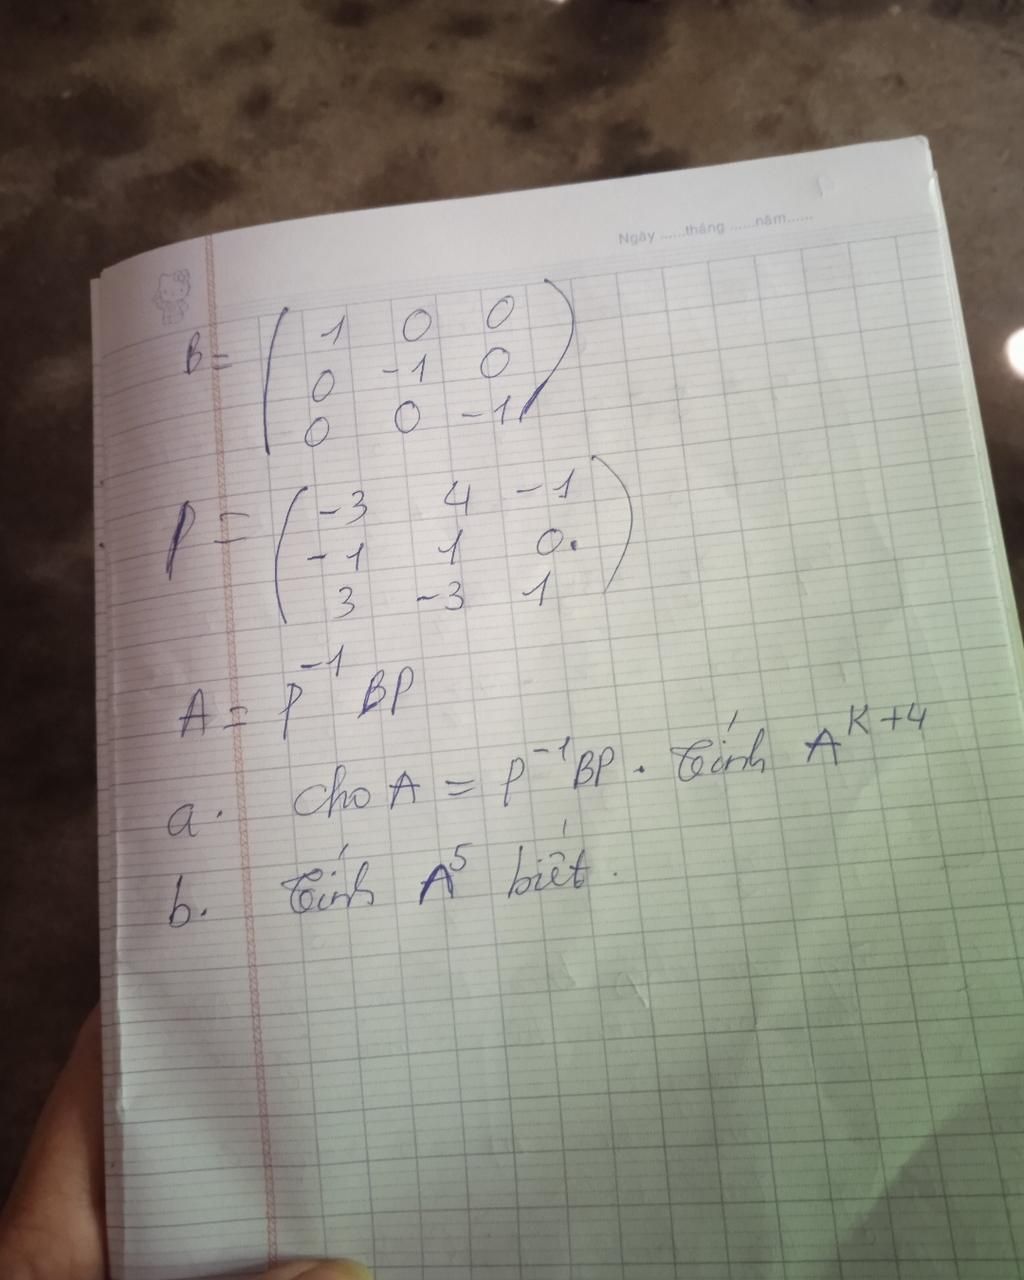 Ngày ......tháng ......năm......
B = ( 1 0 0
0 -1 0
0 0 -1 )
P = ( -3 4 -1
-1 1 0.
3 -3 1 )
A = P⁻¹ BP
a. Cho A = P⁻¹BP. Tính A^K+4
b. Tính A⁵ biết.